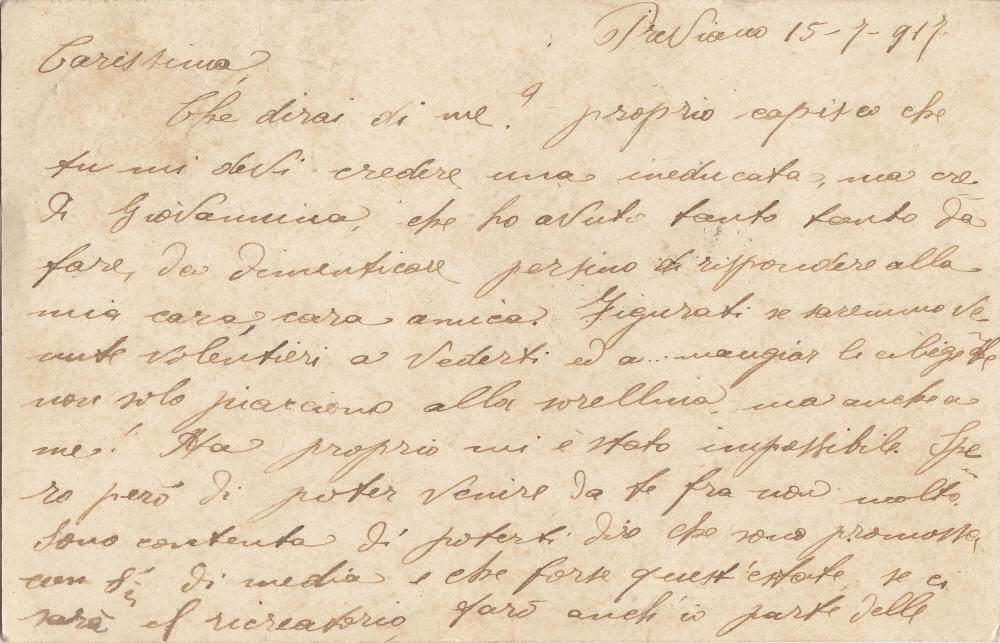 Treviano 15-7-917.
Carissima,
Che dirai di me? proprio capisco che
tu mi devi credere una ineducata, ma cre
di Giovannina, che ho avuto tanto tanto da
fare, da dimenticare persino di rispondere alla
mia cara, cara amica. Figurati se saremmo ve-
nute volentieri a vederti ed a... mangiar le ciliege che
non solo piacciono alla sorellina, ma anche a
me! Ma proprio mi è stato impossibile. Spe
ro però di poter venire da te fra non molto.
Sono contenta di poterti dire che sono promossa,
con 8 di media e che forse quest'estate, se ci
sarà il ricreatorio, farò anch'io parte delle